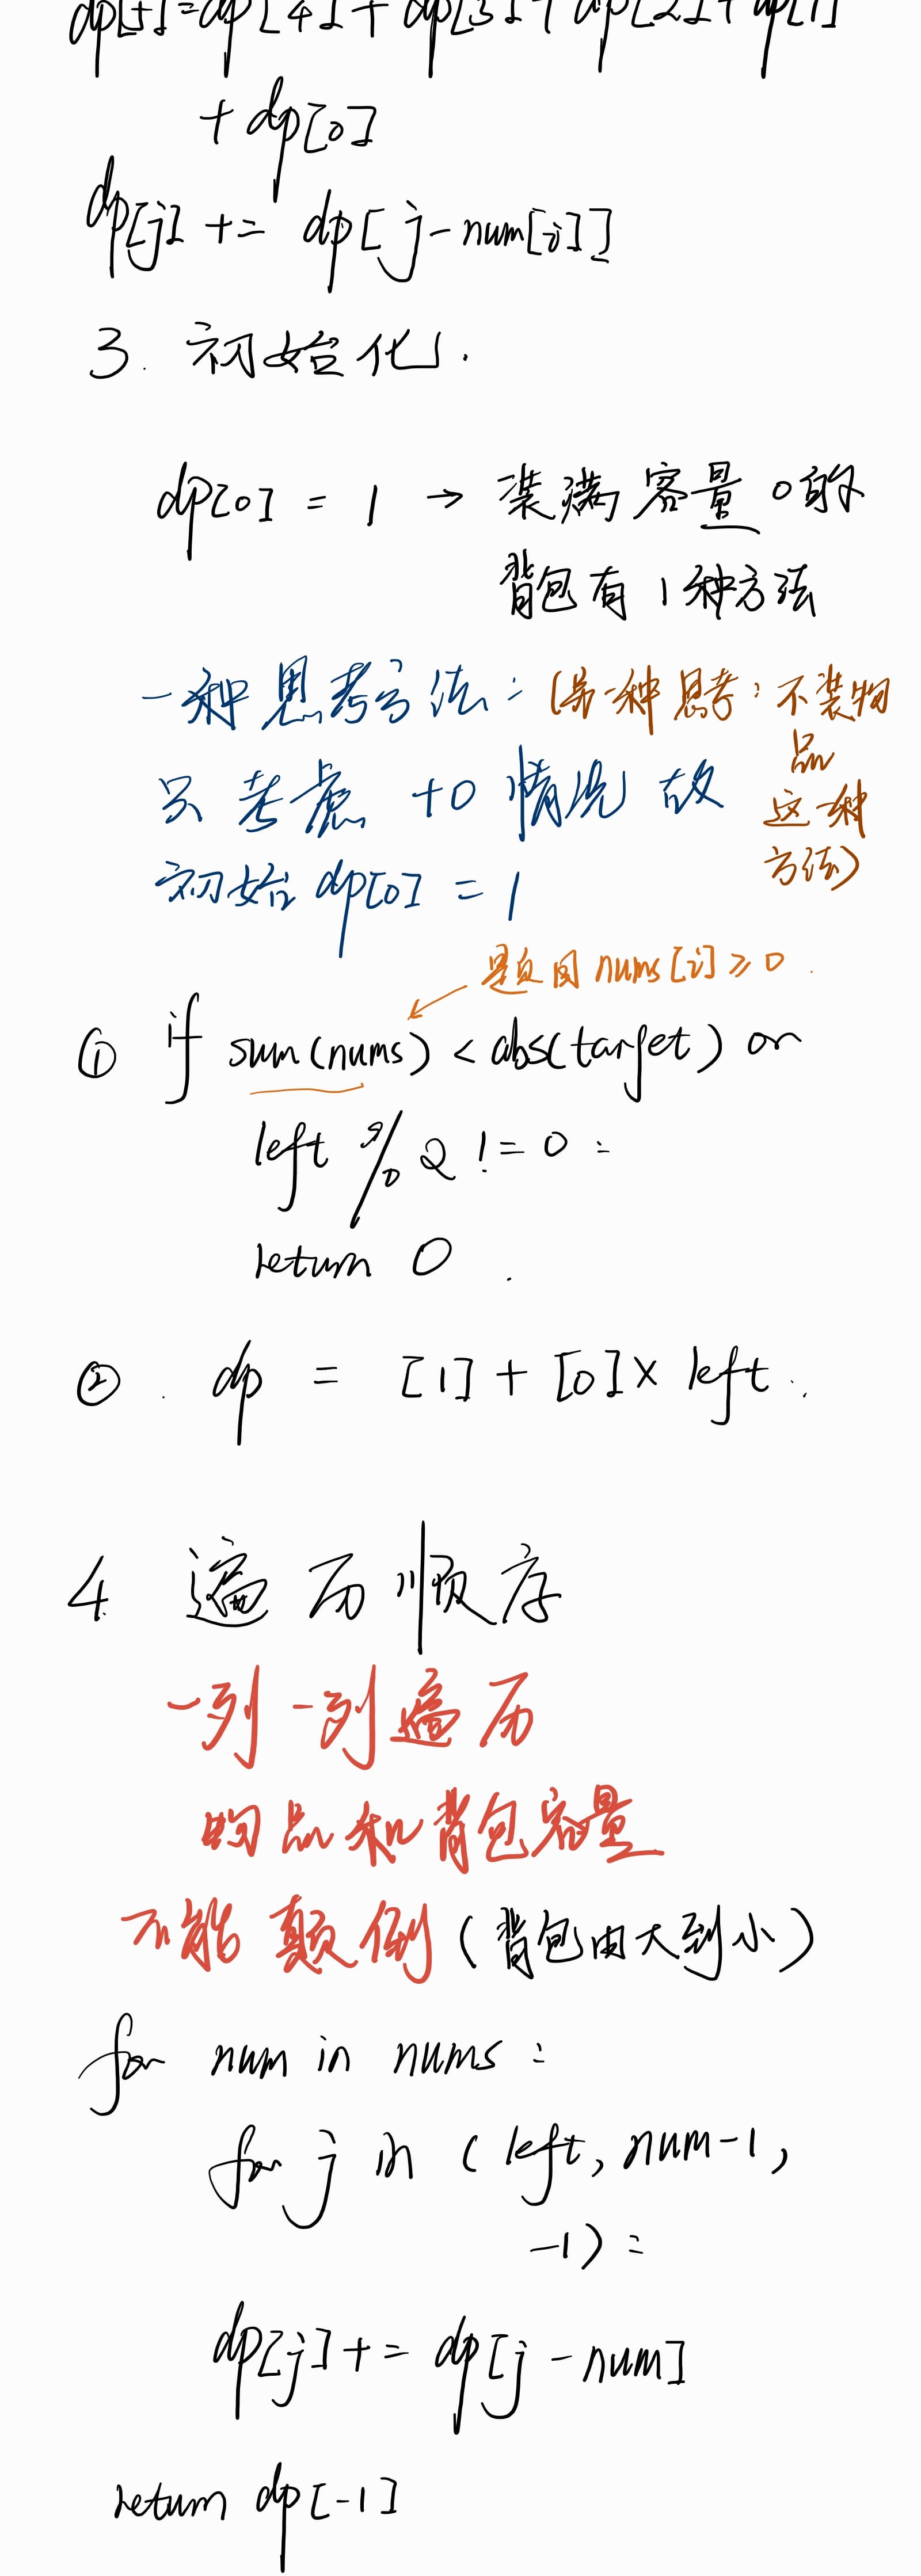 dp[5]=dp[4]+dp[3]+dp[2]+dp[1]
+dp[0]
dp[j] += dp[j-num[i]]
3. 初始化.
dp[0] = 1 → 装满容量0的
背包有1种方法
一种思考方法: (另一种思考:不装物
品
只考虑 +0 情况 故
这一种
方法)
初始 dp[0] = 1
题目 nums[i]≥0
① if sum(nums) < abs(target) or
left % 2 != 0 :
return 0.
②. dp = [1] + [0] × left.
4. 遍历顺序
一列一列遍历
物品和背包容量
不能颠倒 (背包由大到小)
for num in nums:
for j in (left, num-1,
-1):
dp[j] += dp[j-num]
return dp[-1]